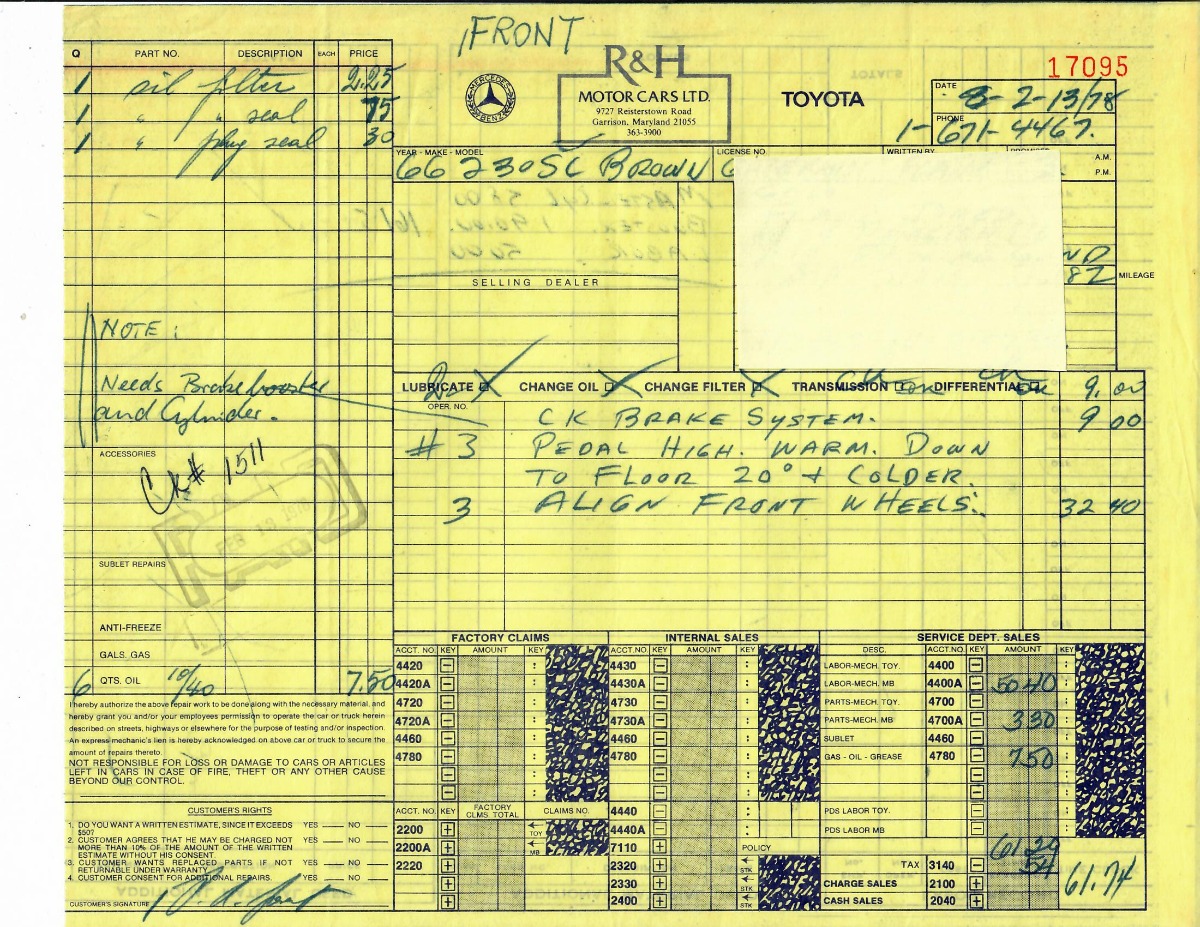 FRONT
R&H
MOTOR CARS LTD.
9727 Reisterstown Road
Garrison, Maryland 21055
363-3900
MERCEDES BENZ
TOYOTA
17095
DATE 2-13/78
PHONE 1-671-4467.
Q PART NO. DESCRIPTION EACH PRICE
1 oil filter 2.25
1 " " seal 75
1 " plug seal 30
YEAR - MAKE - MODEL LICENSE NO. WRITTEN BY PROMISED A.M.
P.M.
66 230SL BROWN
ND
82 MILEAGE
SELLING DEALER
NOTE:
Needs Brake booster
and Cylinder.
ACCESSORIES
CK# 1511
SUBLET REPAIRS
ANTI-FREEZE
GALS. GAS
6 QTS. OIL 10/40 7.50
LUBRICATE CHANGE OIL CHANGE FILTER TRANSMISSION OK DIFFERENTIAL OK 9.00
OPER. NO.
CK BRAKE SYSTEM. 9 00
#3 PEDAL HIGH. WARM. DOWN
TO FLOOR 20° & COLDER.
3 ALIGN FRONT WHEELS. 32 40
I hereby authorize the above repair work to be done along with the necessary material, and
hereby grant you and/or your employees permission to operate the car or truck herein
described on streets, highways or elsewhere for the purpose of testing and/or inspection.
An express mechanic's lien is hereby acknowledged on above car or truck to secure the
amount of repairs thereto.
NOT RESPONSIBLE FOR LOSS OR DAMAGE TO CARS OR ARTICLES
LEFT IN CARS IN CASE OF FIRE, THEFT OR ANY OTHER CAUSE
BEYOND OUR CONTROL.
CUSTOMER'S RIGHTS
1. DO YOU WANT A WRITTEN ESTIMATE, SINCE IT EXCEEDS YES NO
$50?
2. CUSTOMER AGREES THAT HE MAY BE CHARGED NOT YES NO
MORE THAN 10% OF THE AMOUNT OF THE WRITTEN
ESTIMATE WITHOUT HIS CONSENT.
3. CUSTOMER WANTS REPLACED PARTS IF NOT YES NO
RETURNABLE UNDER WARRANTY.
4. CUSTOMER CONSENT FOR ADDITIONAL REPAIRS. YES NO
CUSTOMER'S SIGNATURE
FACTORY CLAIMS
ACCT. NO. KEY AMOUNT KEY
4420
4420A
4720
4720A
4460
4780
ACCT. NO. KEY FACTORY CLMS. TOTAL CLAIMS NO.
2200 TOY
2200A MB
2220
INTERNAL SALES
ACCT. NO. KEY AMOUNT KEY
4430
4430A
4730
4730A
4460
4780
4440
4440A
7110 POLICY
2320 STK
2330 STK
2400 STK
SERVICE DEPT. SALES
DESC. ACCT. NO. KEY AMOUNT KEY
LABOR-MECH. TOY. 4400
LABOR-MECH. MB 4400A 50 40
PARTS-MECH. TOY. 4700
PARTS-MECH. MB 4700A 3 30
SUBLET 4460
GAS - OIL - GREASE 4780 7 50
PDS LABOR TOY.
PDS LABOR MB
61.20
TAX 3140 54
CHARGE SALES 2100 61.74
CASH SALES 2040